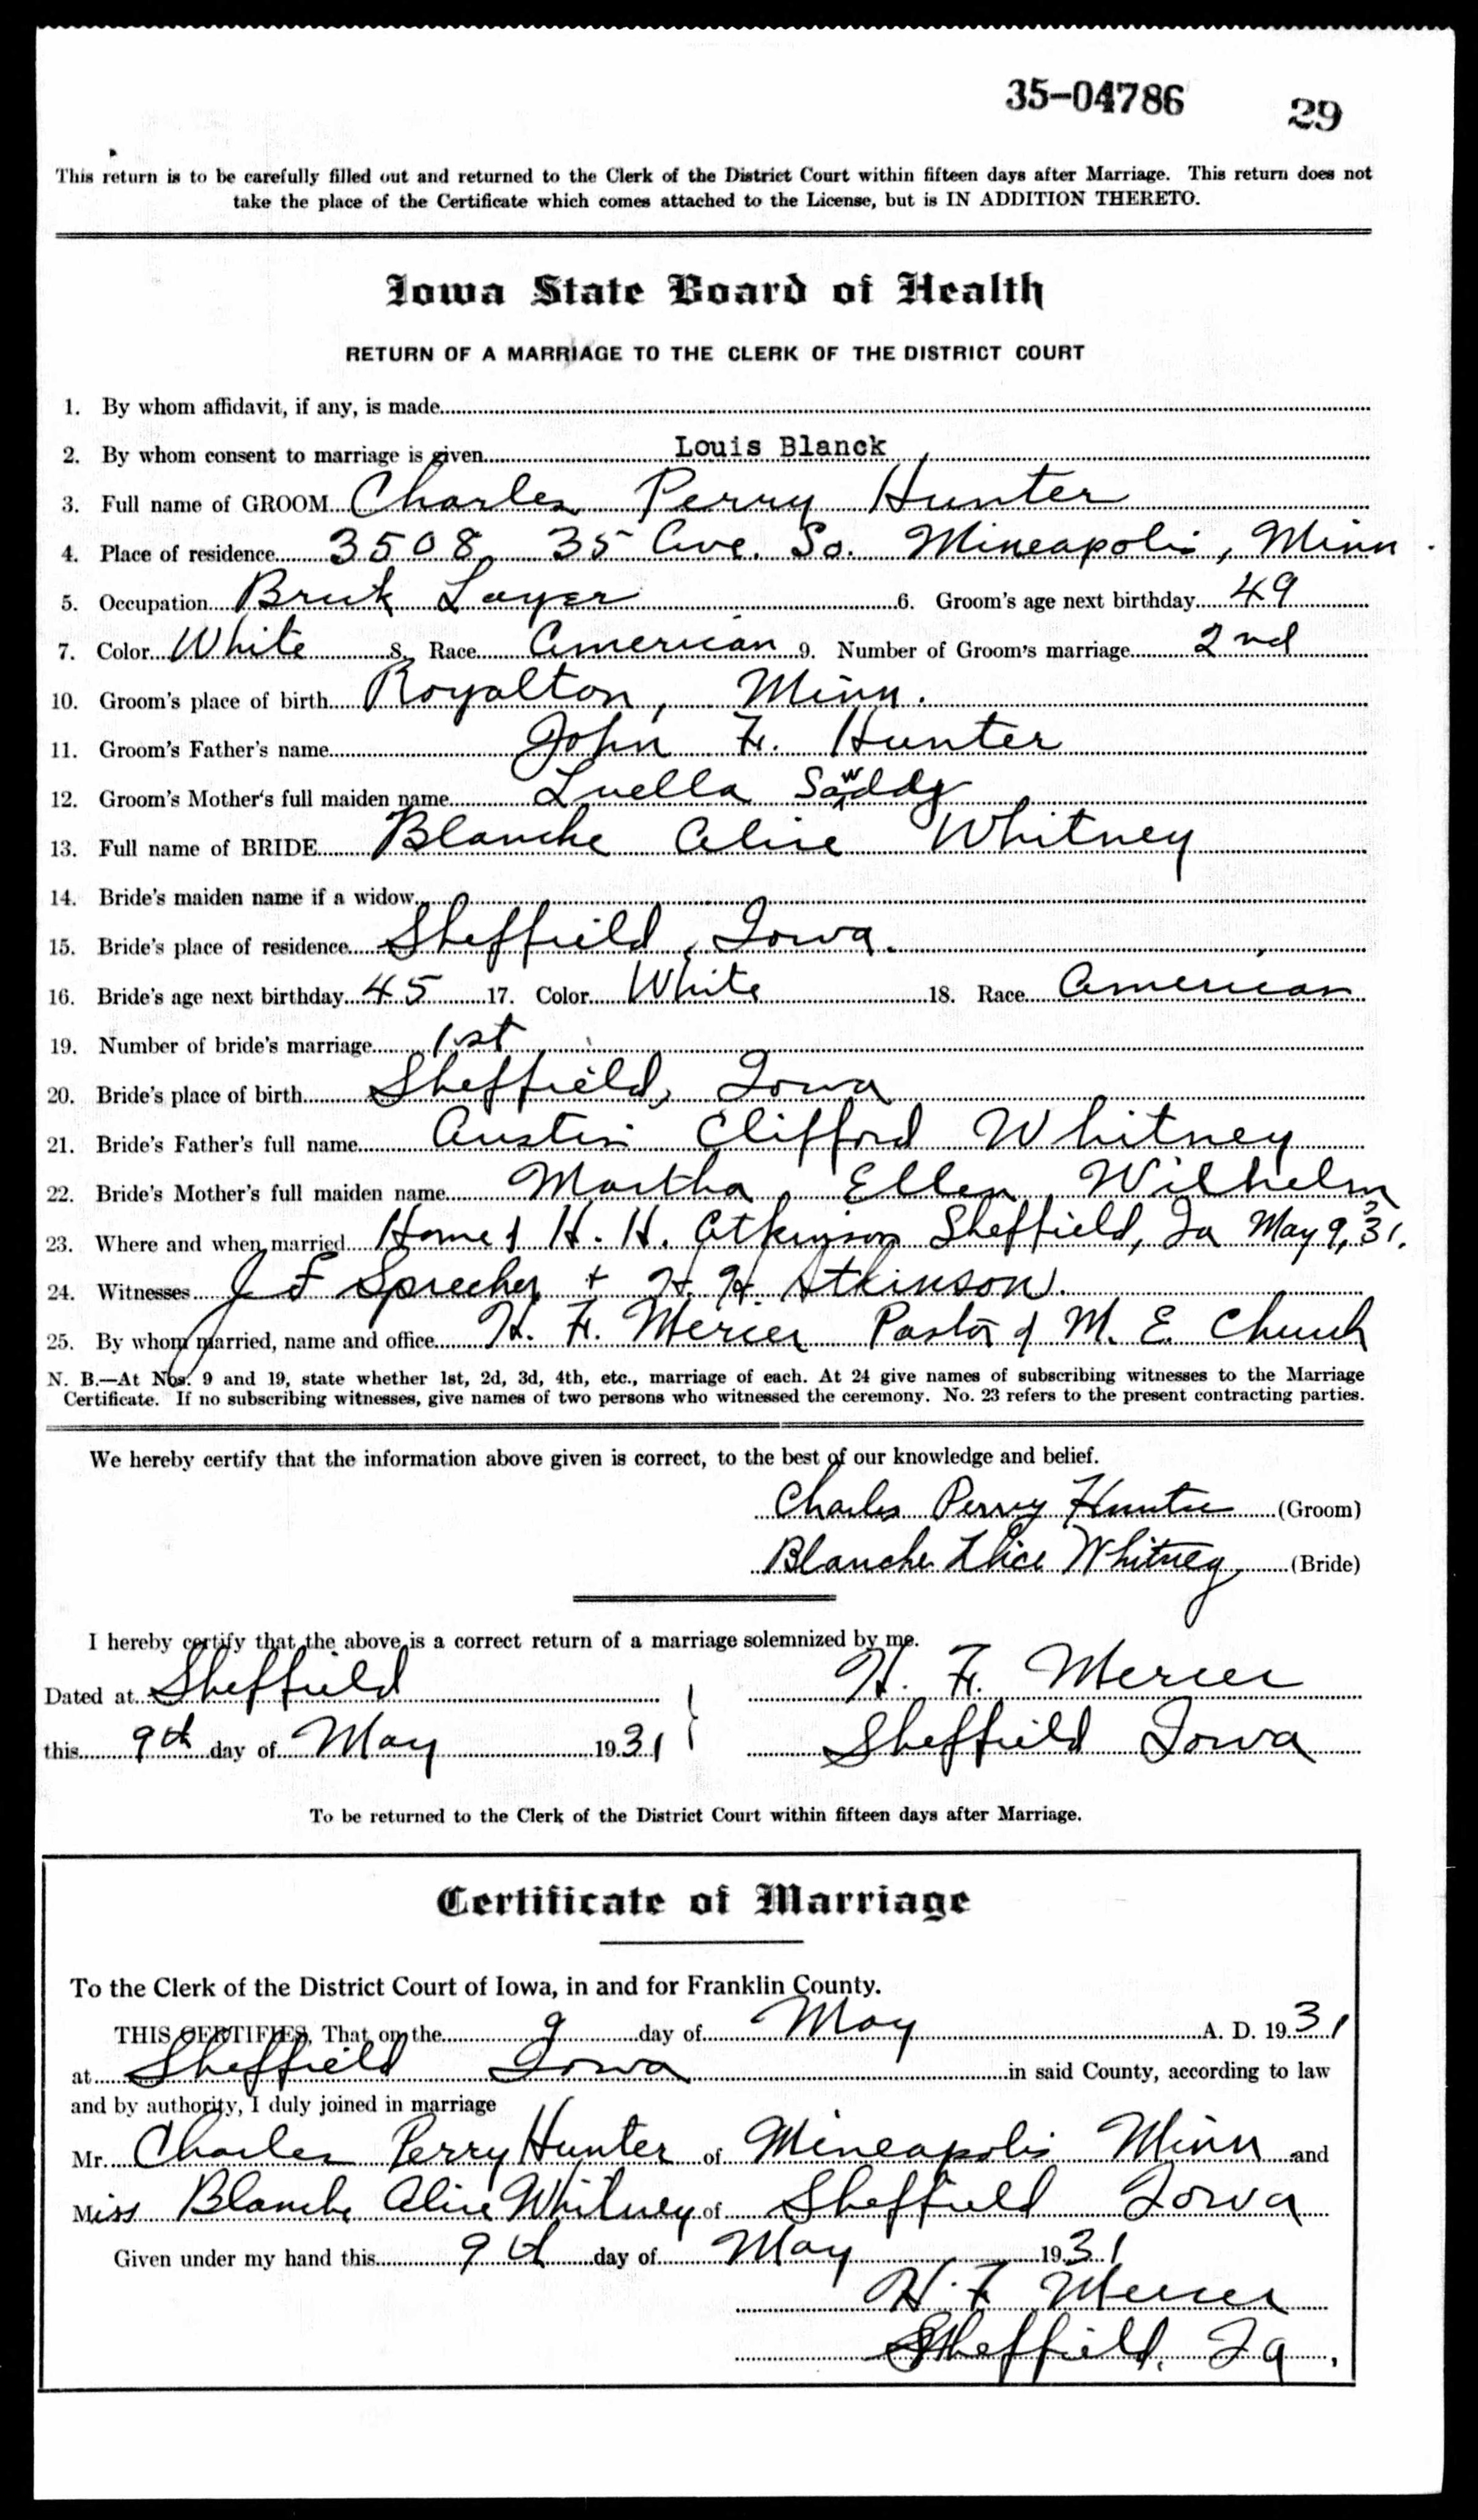 35-04786 29
This return is to be carefully filled out and returned to the Clerk of the District Court within fifteen days after Marriage. This return does not
take the place of the Certificate which comes attached to the License, but is IN ADDITION THERETO.
Iowa State Board of Health
RETURN OF A MARRIAGE TO THE CLERK OF THE DISTRICT COURT
1. By whom affidavit, if any, is made
2. By whom consent to marriage is given Louis Blanck
3. Full name of GROOM Charles Perry Hunter
4. Place of residence 3508 35 Ave. So. Mineapolis, Minn.
5. Occupation Brick Layer 6. Groom's age next birthday 49
7. Color White 8. Race American 9. Number of Groom's marriage 2nd
10. Groom's place of birth Royalton, Minn.
11. Groom's Father's name John F. Hunter
12. Groom's Mother's full maiden name Luella
13. Full name of BRIDE Blanche Alice Whitney
14. Bride's maiden name if a widow
15. Bride's place of residence Sheffield, Iowa.
16. Bride's age next birthday 45 17. Color White 18. Race American
19. Number of bride's marriage 1st
20. Bride's place of birth Sheffield, Iowa
21. Bride's Father's full name Austin Clifford Whitney
22. Bride's Mother's full maiden name Martha Ellen Wilhelm
23. Where and when married Home of H. H. Atkinson Sheffield, Ia May 9, 31.
24. Witnesses J F Sprecher + H. H. Atkinson.
25. By whom married, name and office H. F. Mercer Pastor of M. E. Church
N. B.—At Nos. 9 and 19, state whether 1st, 2d, 3d, 4th, etc., marriage of each. At 24 give names of subscribing witnesses to the Marriage
Certificate. If no subscribing witnesses, give names of two persons who witnessed the ceremony. No. 23 refers to the present contracting parties.
We hereby certify that the information above given is correct, to the best of our knowledge and belief.
Charles Perry Hunter (Groom)
Blanche Alice Whitney (Bride)
I hereby certify that the above is a correct return of a marriage solemnized by me.
Dated at Sheffield H. F. Mercer
this 9th day of May 1931 Sheffield Iowa
To be returned to the Clerk of the District Court within fifteen days after Marriage.
Certificate of Marriage
To the Clerk of the District Court of Iowa, in and for Franklin County.
THIS CERTIFIES, That on the 9 day of May A. D. 1931
at Sheffield Iowa in said County, according to law
and by authority, I duly joined in marriage
Mr. Charles Perry Hunter of Mineapolis Minn and
Miss Blanche Alice Whitney of Sheffield Iowa
Given under my hand this 9th day of May 1931
H. F. Mercer
Sheffield, Ia.